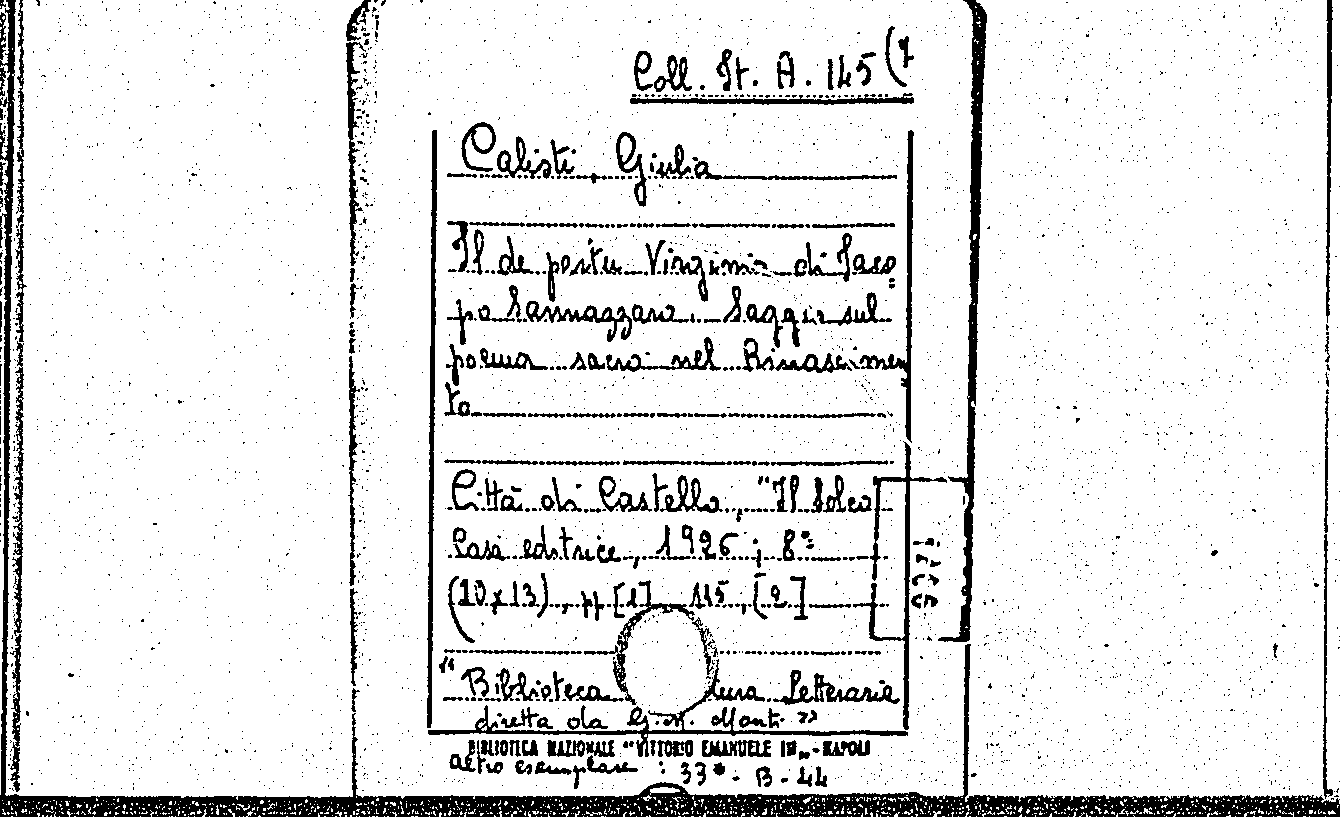 Coll. It. A. 145 (7
Calisti, Giulia
Il de partu Virginis di Jaco
po Sannazzaro. Saggio sul
poema sacro nel Rinascimen
to
Città di Castello, "Il Solco"
Casa editrice, 1926; 8º
(10x13), pp [1] 115, [2]
"Biblioteca tura Letteraria
diretta da G. M. Monti"
BIBLIOTECA NAZIONALE "VITTORIO EMANUELE III" - NAPOLI
altro esemplare: 33ª - B - 44